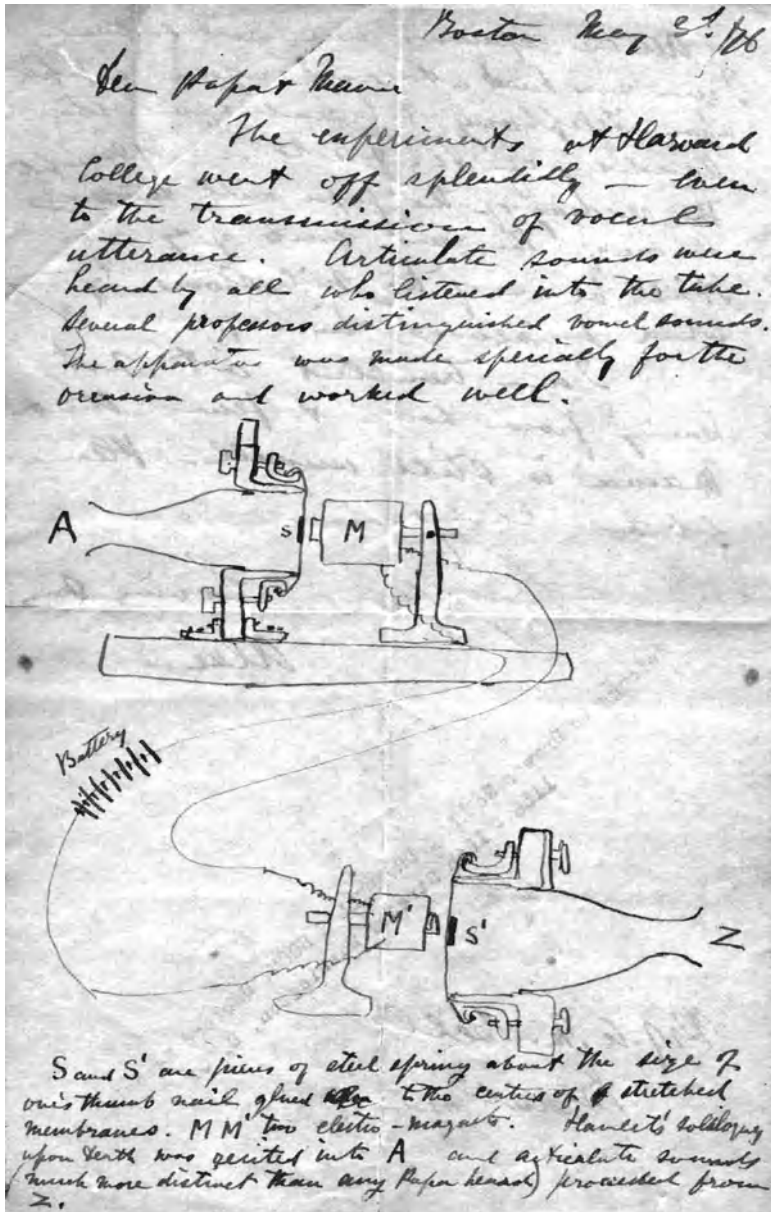 Boston May 3d. /76
Dear Papa & Mama
The experiments at Harvard
College went off splendidly — even
to the transmission of vocal
utterance. Articulate sounds were
heard by all who listened into the tube.
Several professors distinguished vowel sounds.
The apparatus was made specially for the
occasion and worked well.
A
S
M
Battery
M'
S'
Z
S and S' are pieces of steel spring about the size of
one's thumb nail glued to the centres of stretched
membranes. M M' two electro-magnets. Hamlet's soliloquy
upon Death was recited into A and articulate sounds
(much more distinct than any Papa heard) proceeded from
Z.